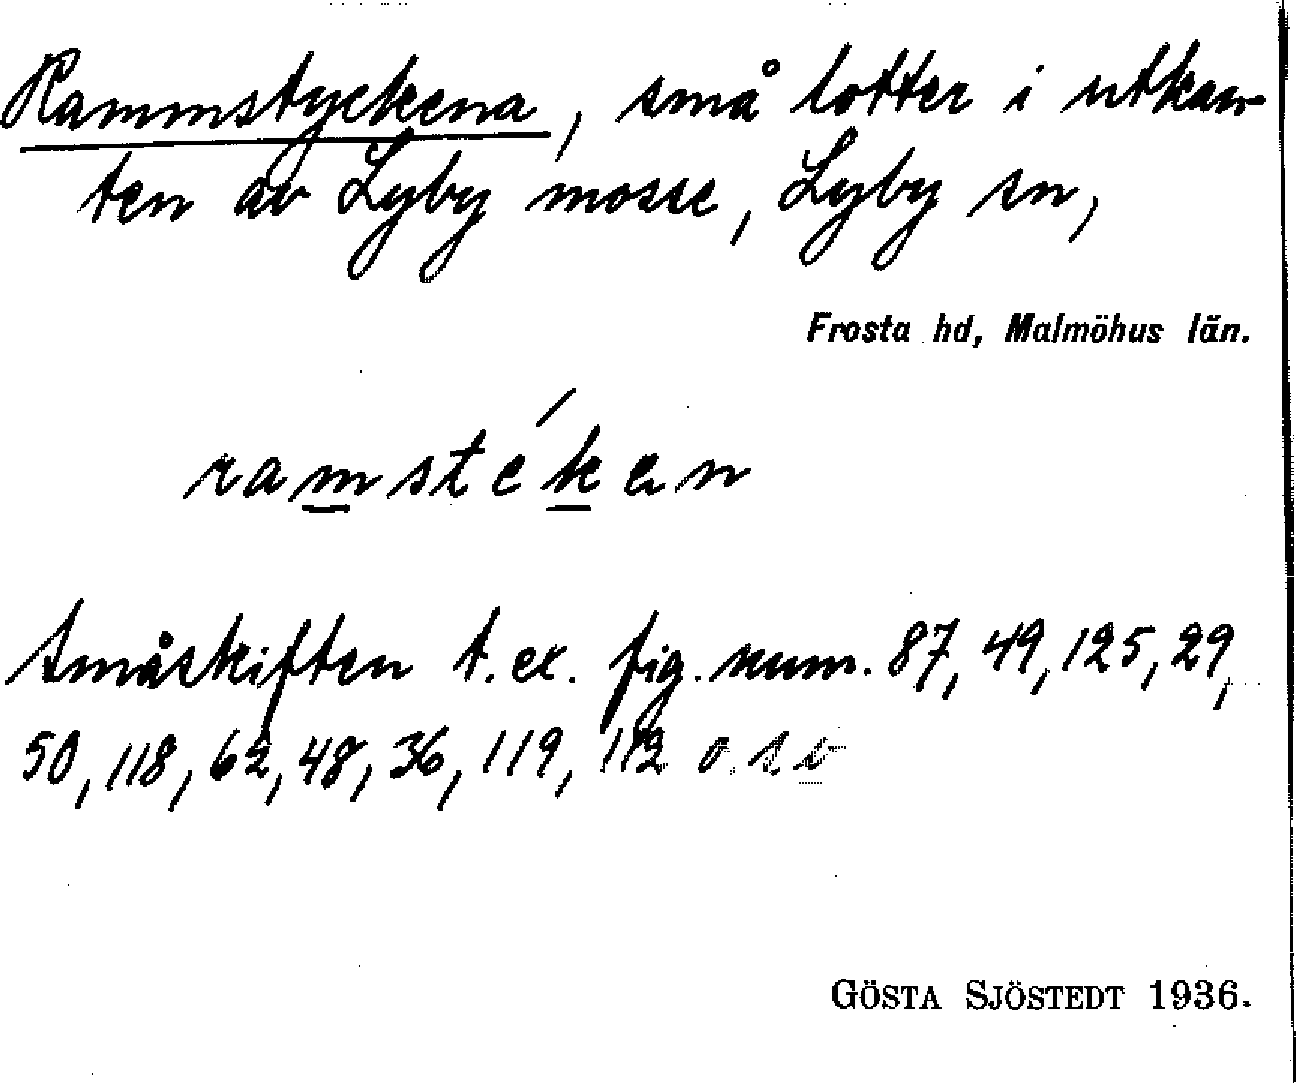 Rammstyckena, små lotter i utkan-
ten av Lyby mosse, Lyby sn,
Frosta hd, Malmöhus län.
ramstékan
Småskiften t. ex. fig. num. 87, 49, 125, 29,
50, 118, 62, 48, 36, 119, 112 o. s. v
GÖSTA SJÖSTEDT 1936.